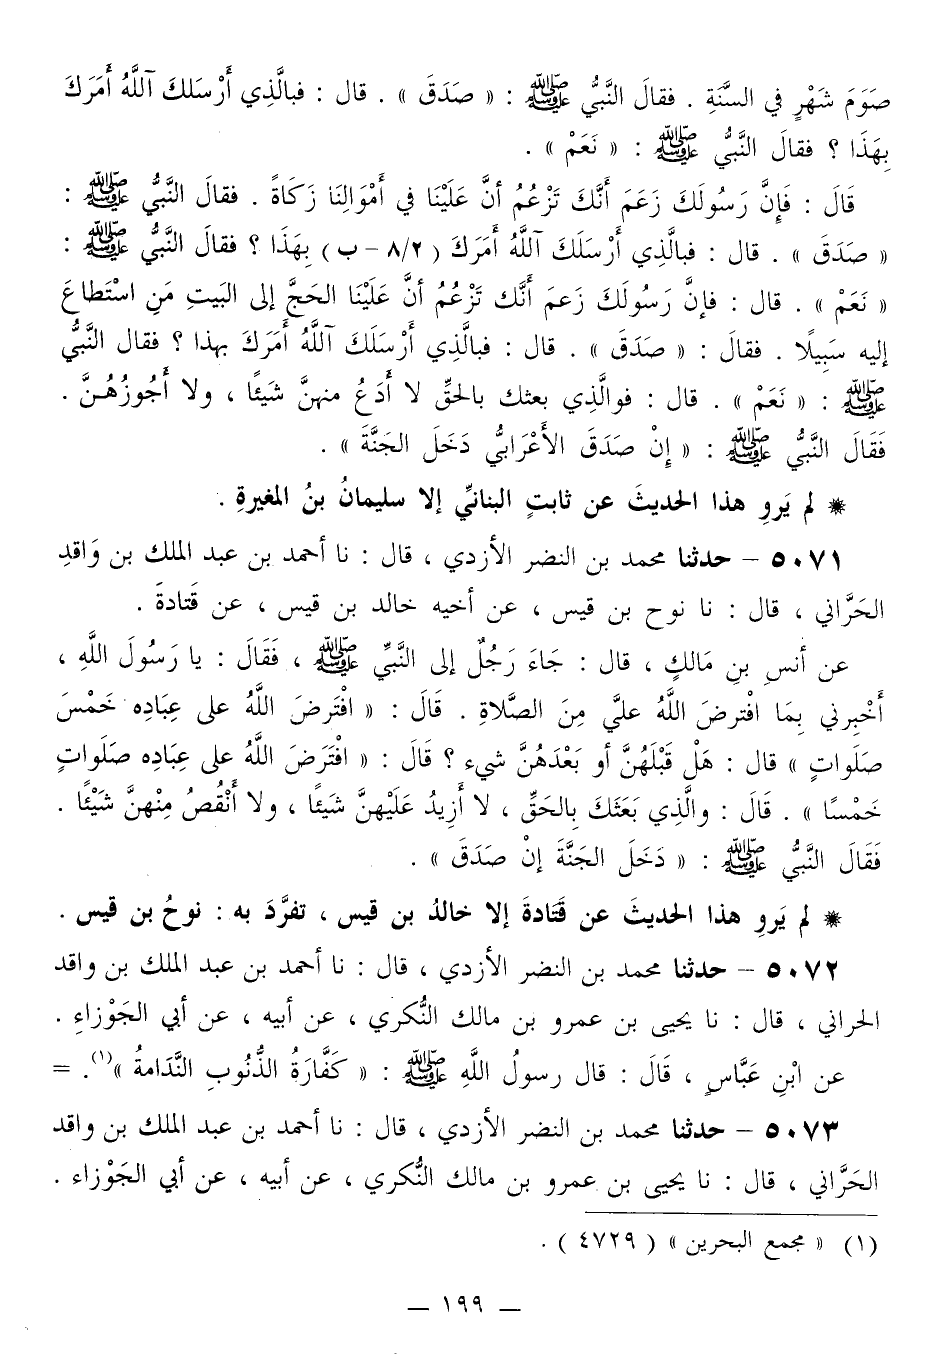 صَوَمَ شَهْرٍ في السَّنَةِ . فقالَ النَّبيُّ ﷺ : « صَدَقَ » . قال : فبالَّذِي أَرْسَلكَ آللَّهُ أَمَرَكَ
بِهَذَا ؟ فقالَ النَّبيُّ ﷺ : « نَعَمْ » .
قَالَ : فَإِنَّ رَسُولَكَ زَعَمَ أَنَّكَ تَزْعُمُ أنَّ عَلَيْنَا في أمْوَالِنَا زَكَاةً . فقالَ النَّبيُّ ﷺ :
« صَدَقَ » . قال : فبالَّذي أرْسَلَكَ آللَّهُ أمَرَكَ ( ٨/٢ – ب ) بِهَذَا ؟ فقالَ النَّبيُّ ﷺ :
« نَعَمْ » . قال : فإنَّ رَسُولَكَ زَعمَ أنَّك تَزْعُمُ أنَّ عَلَيْنَا الحَجَّ إلى البَيتِ مَنِ اسْتَطاعَ
إليه سَبِيلًا . فقالَ : « صَدَقَ » . قال : فبالَّذي أَرْسَلَكَ آللَّهُ أَمَرَكَ بهذا ؟ فقال النَّبيُّ
ﷺ : « نَعَمْ » . قال : فوالَّذِي بعثك بالحقِّ لا أَدَعُ منهنَّ شَيئًا ، ولا أَجُوزُهُـنَّ .
فَقَالَ النَّبيُّ ﷺ : « إِنْ صَدَقَ الأَعْرَابيُّ دَخَلَ الجَنَّةَ » .
* لم يَروِ هذا الحديثَ عن ثابتٍ البنانيِّ إلا سليمانُ بنُ المغيرةِ .
٥٠٧١ – حدثنا محمد بن النضر الأزدي ، قال : نا أحمد بن عبد الملك بن وَاقدِ
الحَرَّاني ، قال : نا نوح بن قيس ، عن أخيه خالد بن قيس ، عن قَتادةَ .
عن أنسِ بنِ مَالكٍ ، قال : جَاءَ رَجُلٌ إلى النَّبيِّ ﷺ ، فَقَالَ : يا رَسُولَ اللَّهِ ،
أَخْبِرني بِمَا افْترضَ اللَّهُ عليَّ مِنَ الصَّلاةِ . قَالَ : « افْتَرضَ اللَّهُ على عِبَادِه خَمْسَ
صَلَواتٍ » قال : هَلْ قَبْلَهُنَّ أو بَعْدَهُنَّ شيء ؟ قَالَ : « افْتَرَضَ اللَّهُ على عِبَادِه صلَواتٍ
خَمْسًا » . قَالَ : والَّذِي بَعَثَكَ بِالحَقِّ ، لا أَزِيدُ عَلَيْهنَّ شَيئًا ، ولا أَنْقُصُ مِنْهنَّ شَيْئًا .
فَقَالَ النَّبيُّ ﷺ : « دَخَلَ الجَنَّةَ إنْ صَدَقَ » .
* لم يَروِ هذا الحديثَ عن قَتَادةَ إلا خالدُ بن قيس ، تفرَّدَ به : نوحُ بن قيس .
٥٠٧٢ – حدثنا محمد بن النضر الأزدي ، قال : نا أحمد بن عبد الملك بن واقد
الحراني ، قال : نا يحيى بن عمرو بن مالك النُّكري ، عن أبيه ، عن أبي الجَوْزاءِ .
عن ابْنِ عَبَّاسٍ ، قَالَ : قال رسولُ اللَّهِ ﷺ : « كَفَّارَةُ الذُّنُوبِ النَّدَامةُ »(١). =
٥٠٧٣ – حدثنا محمد بن النضر الأزدي ، قال : نا أحمد بن عبد الملك بن واقد
الحَرَّاني ، قال : نا يحيى بن عمرو بن مالك النُّكري ، عن أبيه ، عن أبي الجَوْزاء .
(١) « مجمع البحرين » ( ٤٧٢٩ ) .
– ١٩٩ –